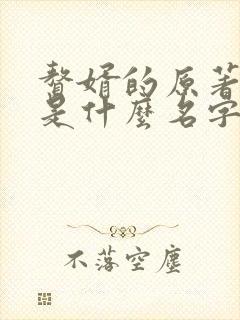 赘婿的原著
是什麼名字
不落空塵